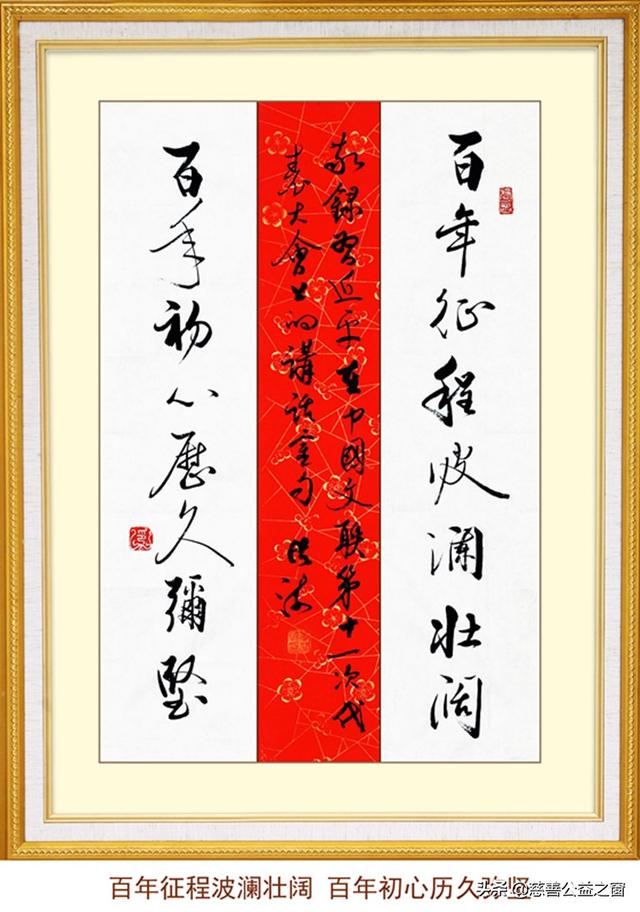 百年征程波澜壮阔
敬録習近平在中國文联第十一次代
表大會上的講話金句
百年初心歷久彌堅
百年征程波澜壮阔 百年初心历久弥坚
头条 @慈善公益之窗